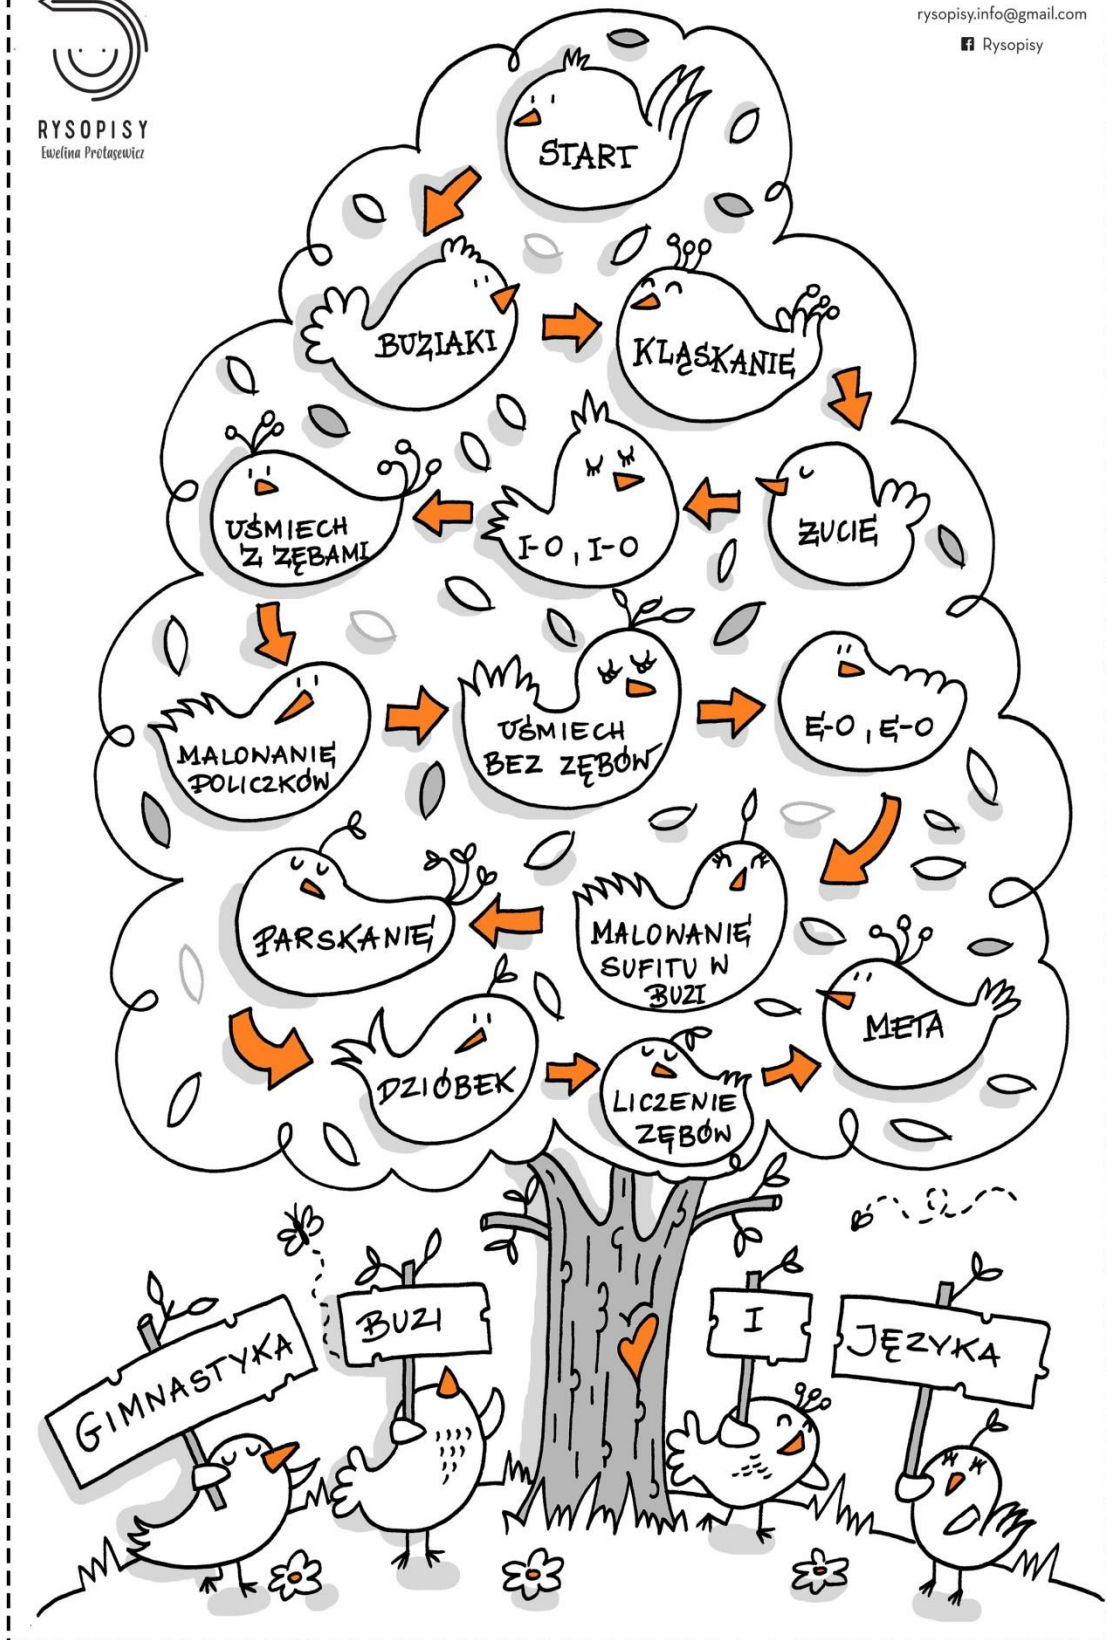 rysopisy.info@gmail.com
Rysopisy
RYSOPISY
Ewelina Protasewicz
START
BUZIAKI
KLĄSKANIE
ŻUCIE
I-O, I-O
UŚMIECH
Z ZĘBAMI
MALOWANIE
POLICZKÓW
UŚMIECH
BEZ ZĘBÓW
E-O, E-O
MALOWANIE
SUFITU W
BUZI
PARSKANIE
DZIÓBEK
LICZENIE
ZĘBÓW
META
GIMNASTYKA
BUZI
I
JĘZYKA